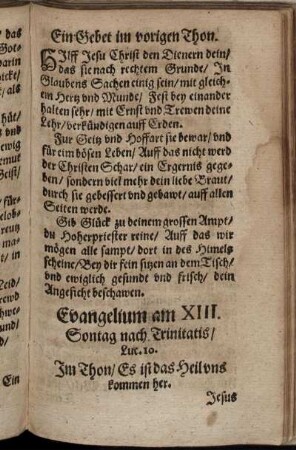 das
Got-
warin
ickt/
als
hüt/
vnd
ewig
emut
Geist/
/ für/
elob-
reuts
nden/
in
Leid/
rewd
chwe-
ns
Ein
Ein Gebet im vorigen Thon.
HIlff Jesu Christ den Dienern dein/
das sie nach rechtem Grunde/ In
Glaubens Sachen einig sein/ mit gleich-
em Hertz vnd Munde/ Fest bey einander
halten sehr/ mit Ernst vnd Trewen deine
Lehr/ verkündigen auff Erden.
Für Geitz vnd Hoffart sie bewar/ vnd
für eim bösen Leben/ Auff das nicht werd
der Christen Schar/ ein Ergernis gege-
ben/ sondern viel mehr dein liebe Braut/
durch sie gebessert vnd gebawt/ auff allen
Seiten werde.
Gib Glück zu deinem grossen Ampt/
du Hoherpriester reine/ Auff das wir
mögen alle sampt/ dort in des Himels
scheine/ Bey dir fein sitzen an dem Tisch/
vnd ewiglich gesundt vnd frisch/ dein
Angesicht beschawen.
Evangelium am XIII.
Sontag nach Trinitatis/
Luc. 10.
Im Thon/ Es ist das Heil vns
kommen her.
Jesus